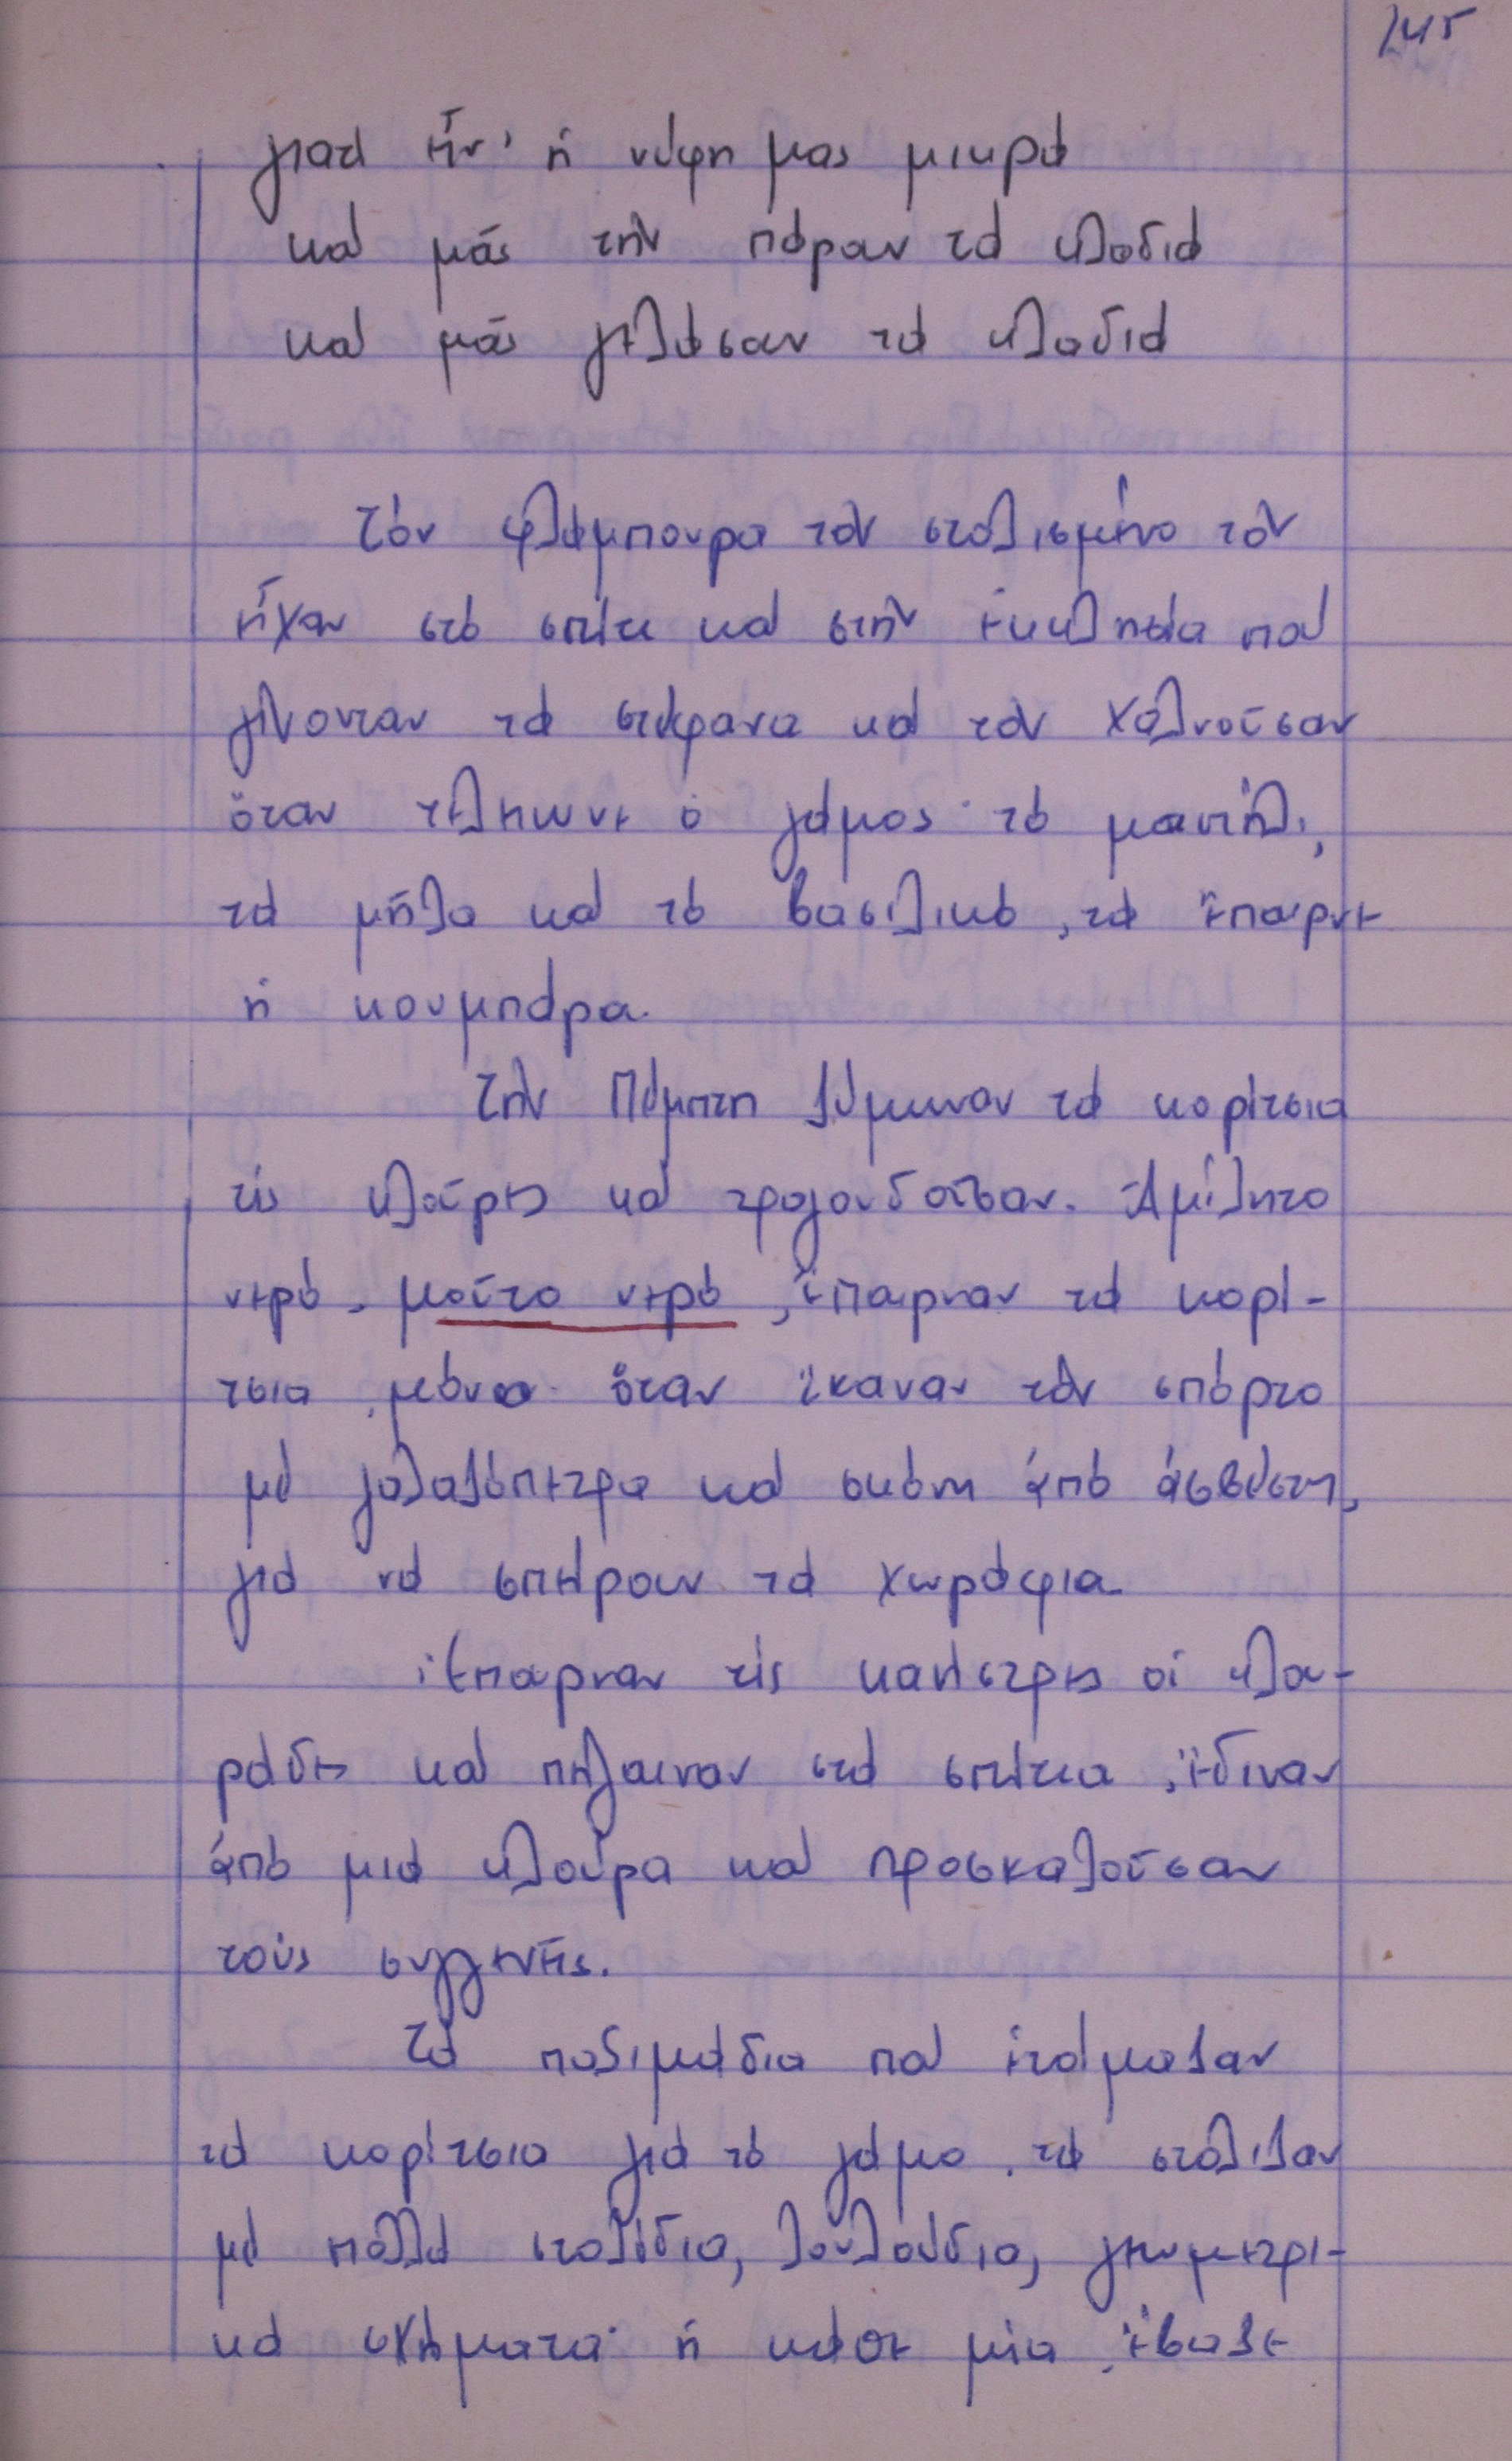 145
γιατί εἶν' ἡ νύφη μας μικρή
καί μᾶς τήν πῆραν τά κλαδιά
καί μᾶς γέλασαν τά κλαδιά
Τόν φλάμπουρα τόν στολισμένο τόν
εἶχαν στό σπίτι καί στήν ἐκκλησία πού
γίνονταν τά στέφανα καί τόν χαλνοῦσαν
ὅταν τέλειωνε ὁ γάμος· τό μαντήλι,
τά μῆλα καί τό βασιλικό, τά ἔπαιρνε
ἡ κουμπάρα.
Τήν Πέμπτη ζύμωναν τά κορίτσια
τίς κλοῦρες καί τραγουδοῦσαν. Ἀμίλητο
νερό - μοῦτο νερό, ἔπαιρναν τά κορί-
τσια, μόνο ὅταν ἔκαναν τόν σπόρτο
μέ γαλαζόπετρα καί σκόνη ἀπό ἀσβέστη,
γιά νά σπείρουν τά χωράφια.
Ἔπαιρναν τίς κανίστρες οἱ κλου-
ράδες καί πήγαιναν στά σπίτια, ἔδιναν
ἀπό μιά κλούρα καί προσκαλοῦσαν
τούς συγγενεῖς.
Τά παξιμάδια πού ἑτοίμαζαν
τά κορίτσια γιά τό γάμο, τά στόλιζαν
μέ πολλά στολίδια, λουλούδια, γεωμετρι-
κά σχήματα· ἡ κάθε μία, ἔβαζε